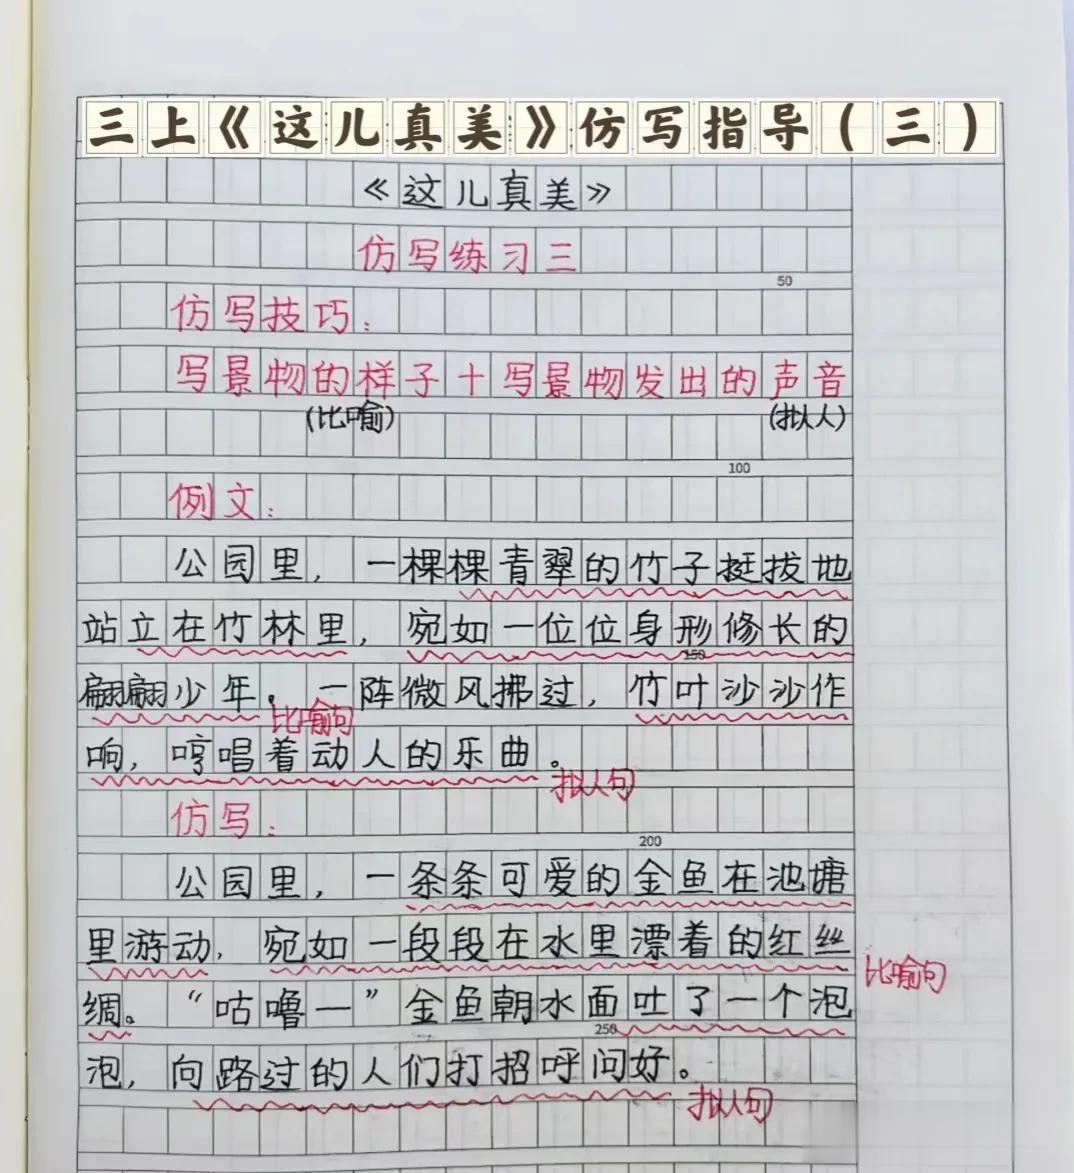 三上《这儿真美》仿写指导(三)
《这儿真美》
仿写练习三
50
仿写技巧:
写景物的样子+写景物发出的声音
(比喻) (拟人)
100
例文:
公园里,一棵棵青翠的竹子挺拔地
站立在竹林里,宛如一位位身形修长的
150
翩翩少年。一阵微风拂过,竹叶沙沙作
比喻句
响,哼唱着动人的乐曲。
拟人句
仿写:
200
公园里,一条条可爱的金鱼在池塘
里游动,宛如一段段在水里漂着的红丝
比喻句
绸。“咕噜一”金鱼朝水面吐了一个泡
250
泡,向路过的人们打招呼问好。
拟人句